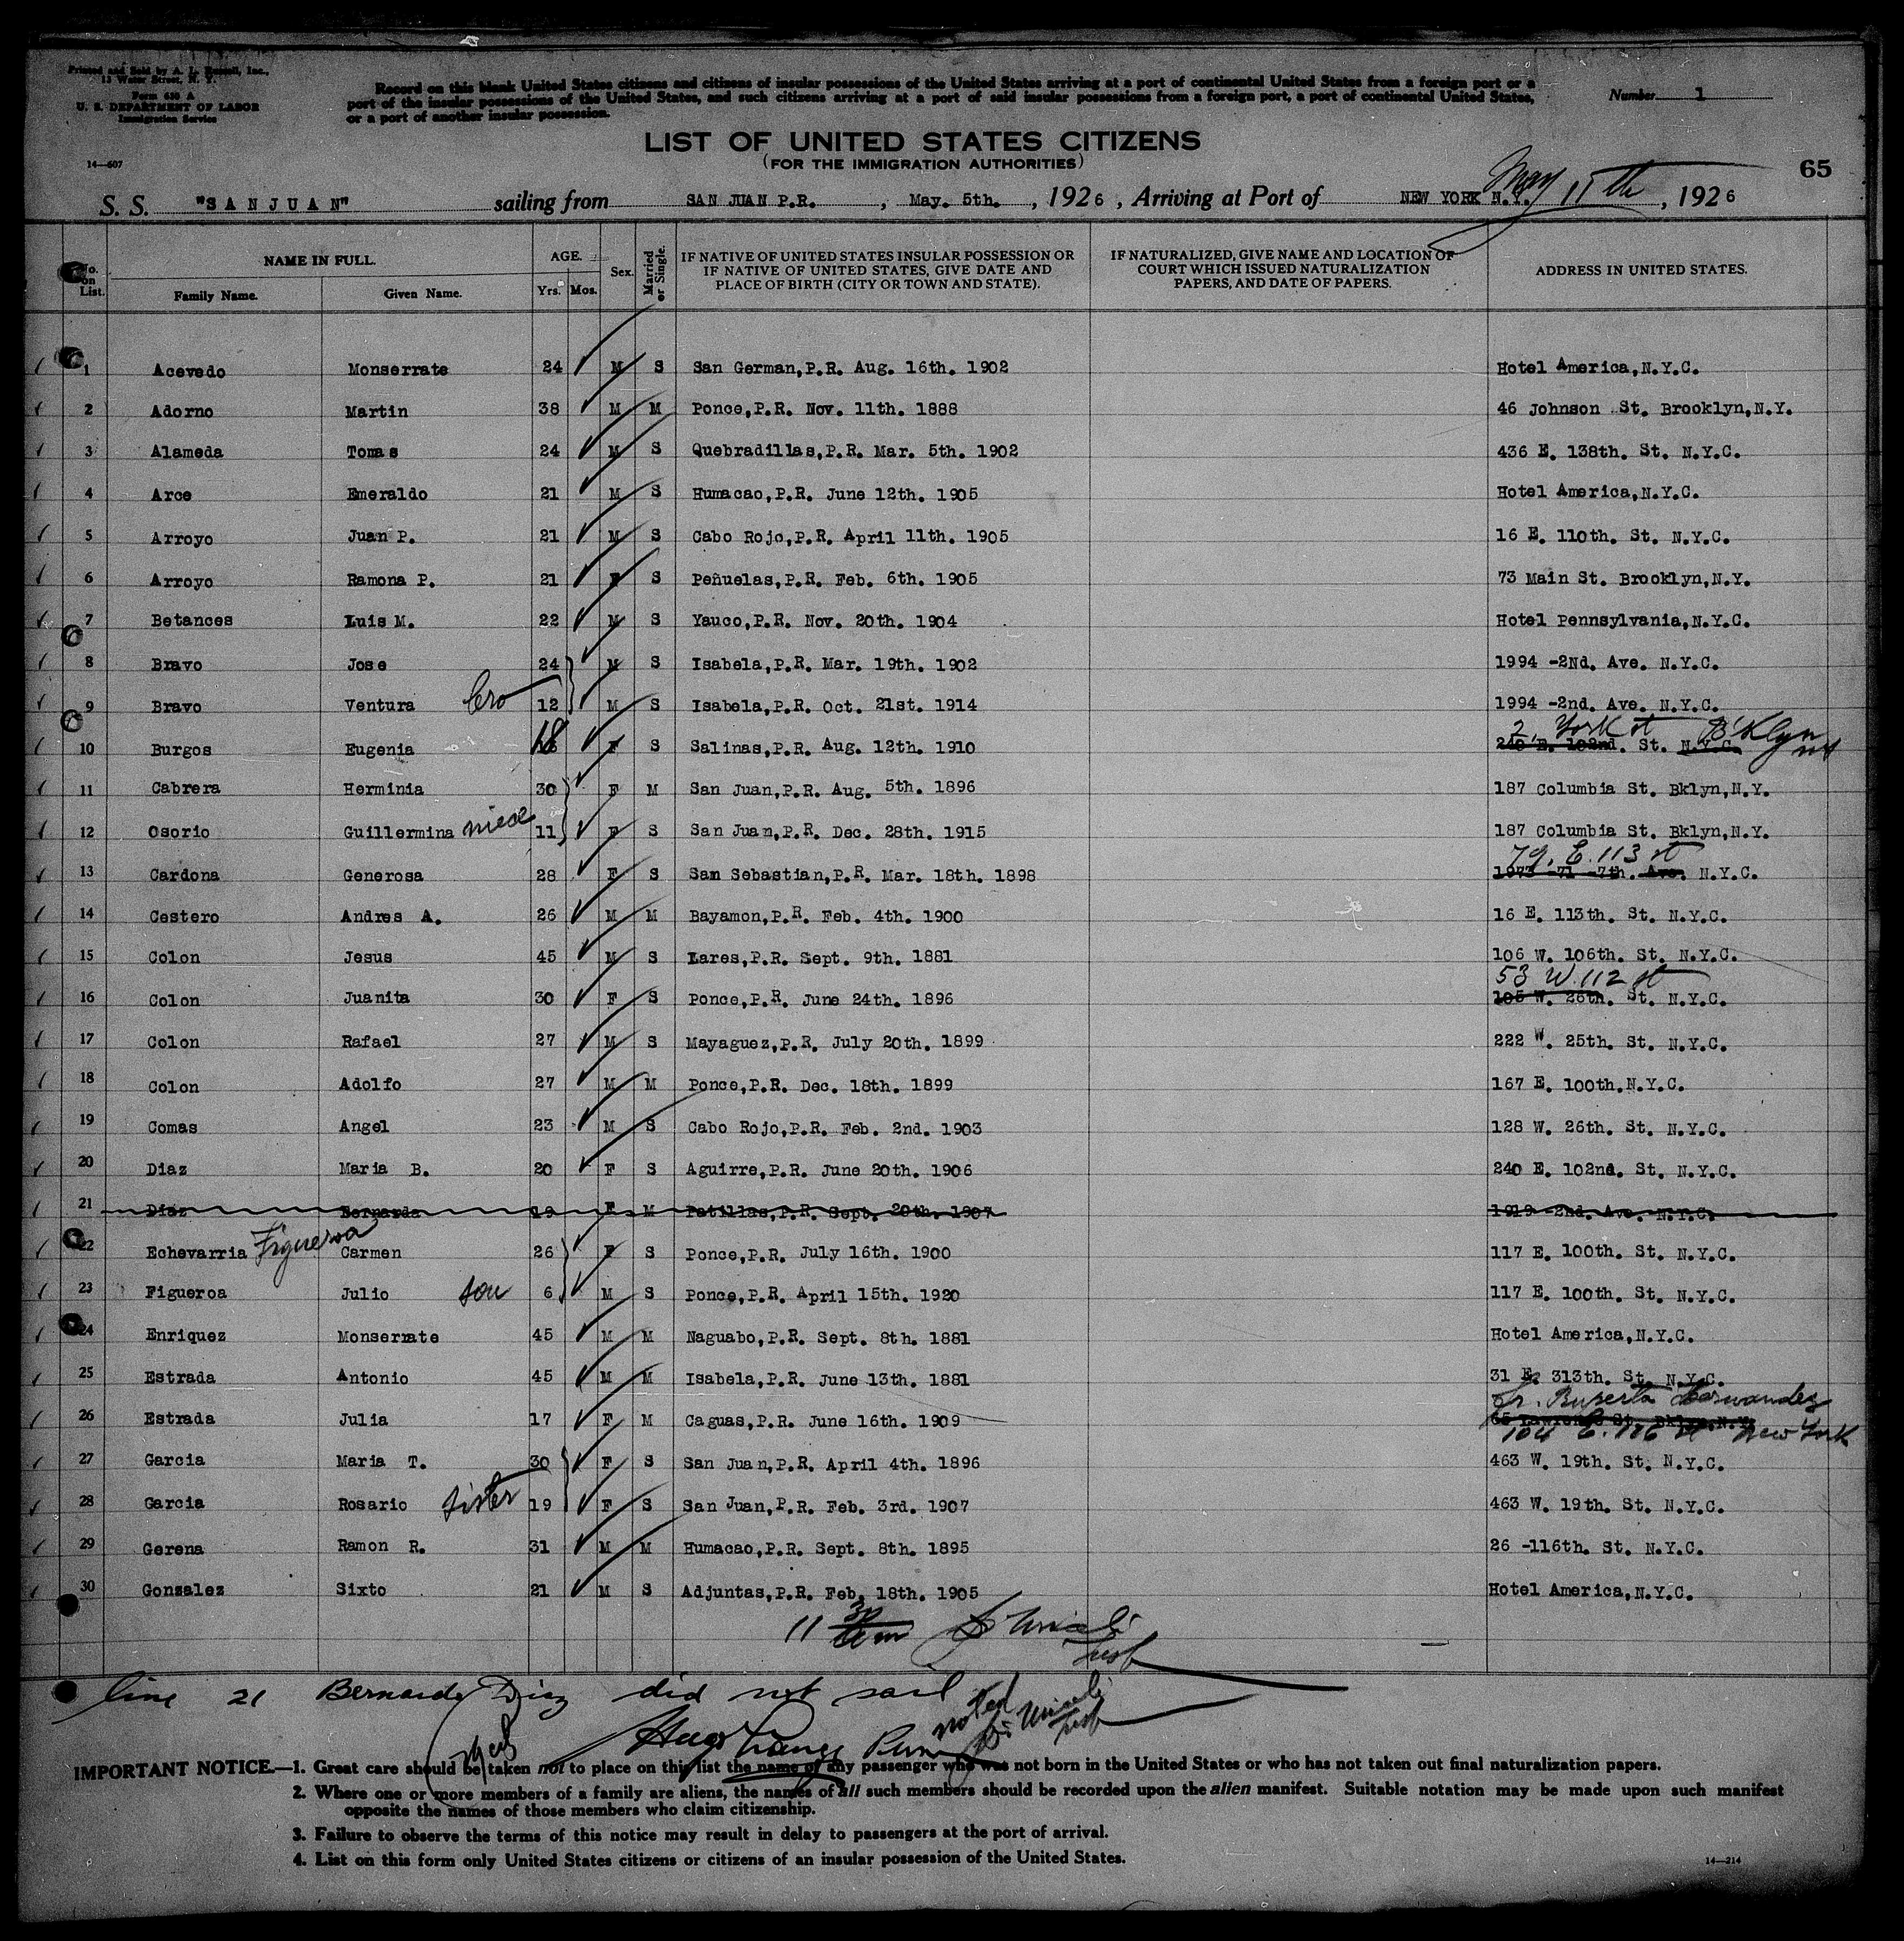 Printed and Sold by A. L. Russell, Inc.,
13 Water Street, N. Y.
Form 630 A
U. S. DEPARTMENT OF LABOR
Immigration Service
14—607
Record on this blank United States citizens and citizens of insular possessions of the United States arriving at a port of continental United States from a foreign port or a
port of the insular possessions of the United States, and such citizens arriving at a port of said insular possessions from a foreign port, a port of continental United States,
or a port of another insular possession.
Number 1
LIST OF UNITED STATES CITIZENS
(FOR THE IMMIGRATION AUTHORITIES)
65
S. S. "SAN JUAN" sailing from SAN JUAN P.R. , May. 5th. , 1926 , Arriving at Port of NEW YORK N.Y. May 11th , 1926
No. on List. NAME IN FULL. Family Name. Given Name. AGE. Yrs. Mos. Sex. Married or Single. IF NATIVE OF UNITED STATES INSULAR POSSESSION OR IF NATIVE OF UNITED STATES, GIVE DATE AND PLACE OF BIRTH (CITY OR TOWN AND STATE). IF NATURALIZED, GIVE NAME AND LOCATION OF COURT WHICH ISSUED NATURALIZATION PAPERS, AND DATE OF PAPERS. ADDRESS IN UNITED STATES.
1 Acevedo Monserrate 24 M S San German,P.R. Aug. 16th. 1902 Hotel America,N.Y.C.
2 Adorno Martin 38 M M Ponce,P.R. Nov. 11th. 1888 46 Johnson St. Brooklyn,N.Y.
3 Alameda Tomas 24 M S Quebradillas,P.R. Mar. 5th. 1902 436 E. 138th. St. N.Y.C.
4 Arce Emeraldo 21 M S Humacao,P.R. June 12th. 1905 Hotel America,N.Y.C.
5 Arroyo Juan P. 21 M S Cabo Rojo,P.R. April 11th. 1905 16 E. 110th. St. N.Y.C.
6 Arroyo Ramona P. 21 F S Peñuelas,P.R. Feb. 6th. 1905 73 Main St. Brooklyn,N.Y.
7 Betances Luis M. 22 M S Yauco,P.R. Nov. 20th. 1904 Hotel Pennsylvania,N.Y.C.
8 Bravo Jose 24 M S Isabela,P.R. Mar. 19th. 1902 1994 -2Nd. Ave. N.Y.C.
9 Bravo Ventura bro 12 M S Isabela,P.R. Oct. 21st. 1914 1994 -2nd. Ave. N.Y.C.
2, York st B'klyn ny
10 Burgos Eugenia 18 F S Salinas,P.R. Aug. 12th. 1910 240 E. 102nd. St. N.Y.C.
11 Cabrera Herminia 30 F M San Juan,P.R. Aug. 5th. 1896 187 Columbia St. Bklyn,N.Y.
12 Osorio Guillermina niece 11 F S San Juan,P.R. Dec. 28th. 1915 187 Columbia St. Bklyn,N.Y.
79, E. 113 st
13 Cardona Generosa 28 F S San Sebastian,P.R. Mar. 18th. 1898 1973 -71 -7th. Ave. N.Y.C.
14 Cestero Andres A. 26 M M Bayamon,P.R. Feb. 4th. 1900 16 E. 113th. St. N.Y.C.
15 Colon Jesus 45 M S Lares,P.R. Sept. 9th. 1881 106 W. 106th. St. N.Y.C.
53 W. 112 st
16 Colon Juanita 30 F S Ponce,P.R. June 24th. 1896 105 W. 26th. St. N.Y.C.
17 Colon Rafael 27 M S Mayaguez,P.R. July 20th. 1899 222 W. 25th. St. N.Y.C.
18 Colon Adolfo 27 M M Ponce,P.R. Dec. 18th. 1899 167 E. 100th.N.Y.C.
19 Comas Angel 23 M S Cabo Rojo,P.R. Feb. 2nd. 1903 128 W. 26th. St. N.Y.C.
20 Diaz Maria B. 20 F S Aguirre,P.R. June 20th. 1906 240 E. 102nd. St. N.Y.C.
21 Diaz Bernarda 19 F M Patillas,P.R. Sept. 20th. 1907 1919 -2nd. Ave. N.Y.C.
22 Echevarria Figueroa Carmen 26 F S Ponce,P.R. July 16th. 1900 117 E. 100th. St. N.Y.C.
23 Figueroa Julio son 6 M S Ponce,P.R. April 15th. 1920 117 E. 100th. St. N.Y.C.
24 Enriquez Monserrate 45 M M Naguabo,P.R. Sept. 8th. 1881 Hotel America,N.Y.C.
25 Estrada Antonio 45 M M Isabela,P.R. June 13th. 1881 31 E. 313th. St. N.Y.C.
Ruperta Hernandez
26 Estrada Julia 17 F M Caguas,P.R. June 16th. 1909 65 Lawrence St. Bklyn,N.Y.
104 E. 116 st New York
27 Garcia Maria T. 30 F S San Juan,P.R. April 4th. 1896 463 W. 19th. St. N.Y.C.
28 Garcia Rosario sister 19 F S San Juan,P.R. Feb. 3rd. 1907 463 W. 19th. St. N.Y.C.
29 Gerena Ramon R. 31 M M Humacao,P.R. Sept. 8th. 1895 26 -116th. St. N.Y.C.
30 Gonzalez Sixto 21 M S Adjuntas,P.R. Feb. 18th. 1905 Hotel America,N.Y.C.
11 30 am
line 21 Bernarda Diaz did not sail
noted
IMPORTANT NOTICE.—1. Great care should be taken not to place on this list the name of any passenger who was not born in the United States or who has not taken out final naturalization papers.
2. Where one or more members of a family are aliens, the names of all such members should be recorded upon the alien manifest. Suitable notation may be made upon such manifest
opposite the names of those members who claim citizenship.
3. Failure to observe the terms of this notice may result in delay to passengers at the port of arrival.
4. List on this form only United States citizens or citizens of an insular possession of the United States.
14—214